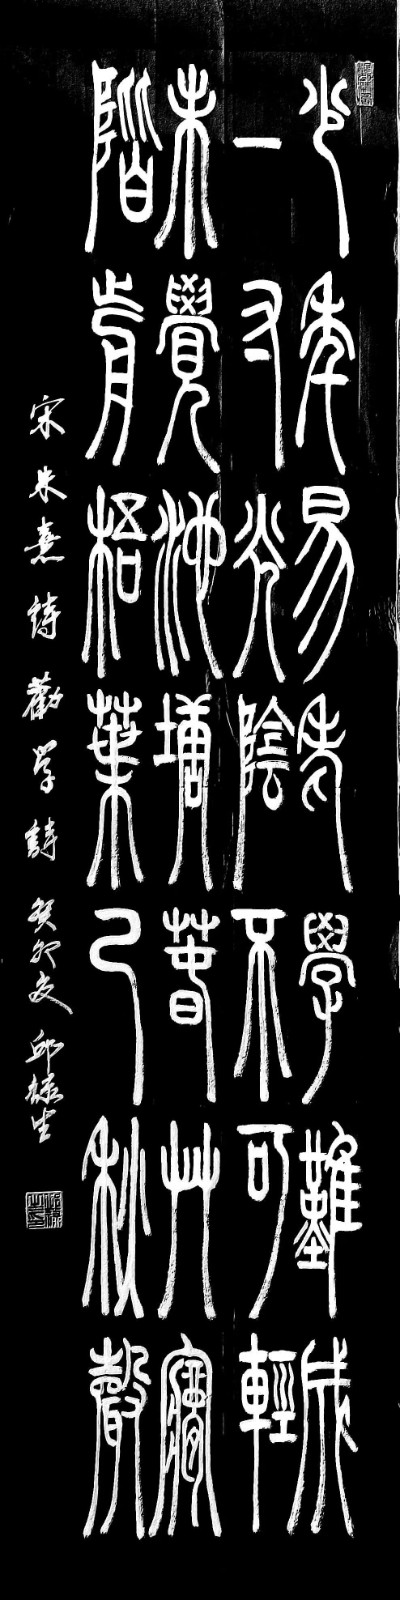 少年易老學難成
一寸光陰不可輕
未覺池塘春艸夢
階前梧葉已秋聲
宋朱熹詩勸学詩 癸卯夏 邱生